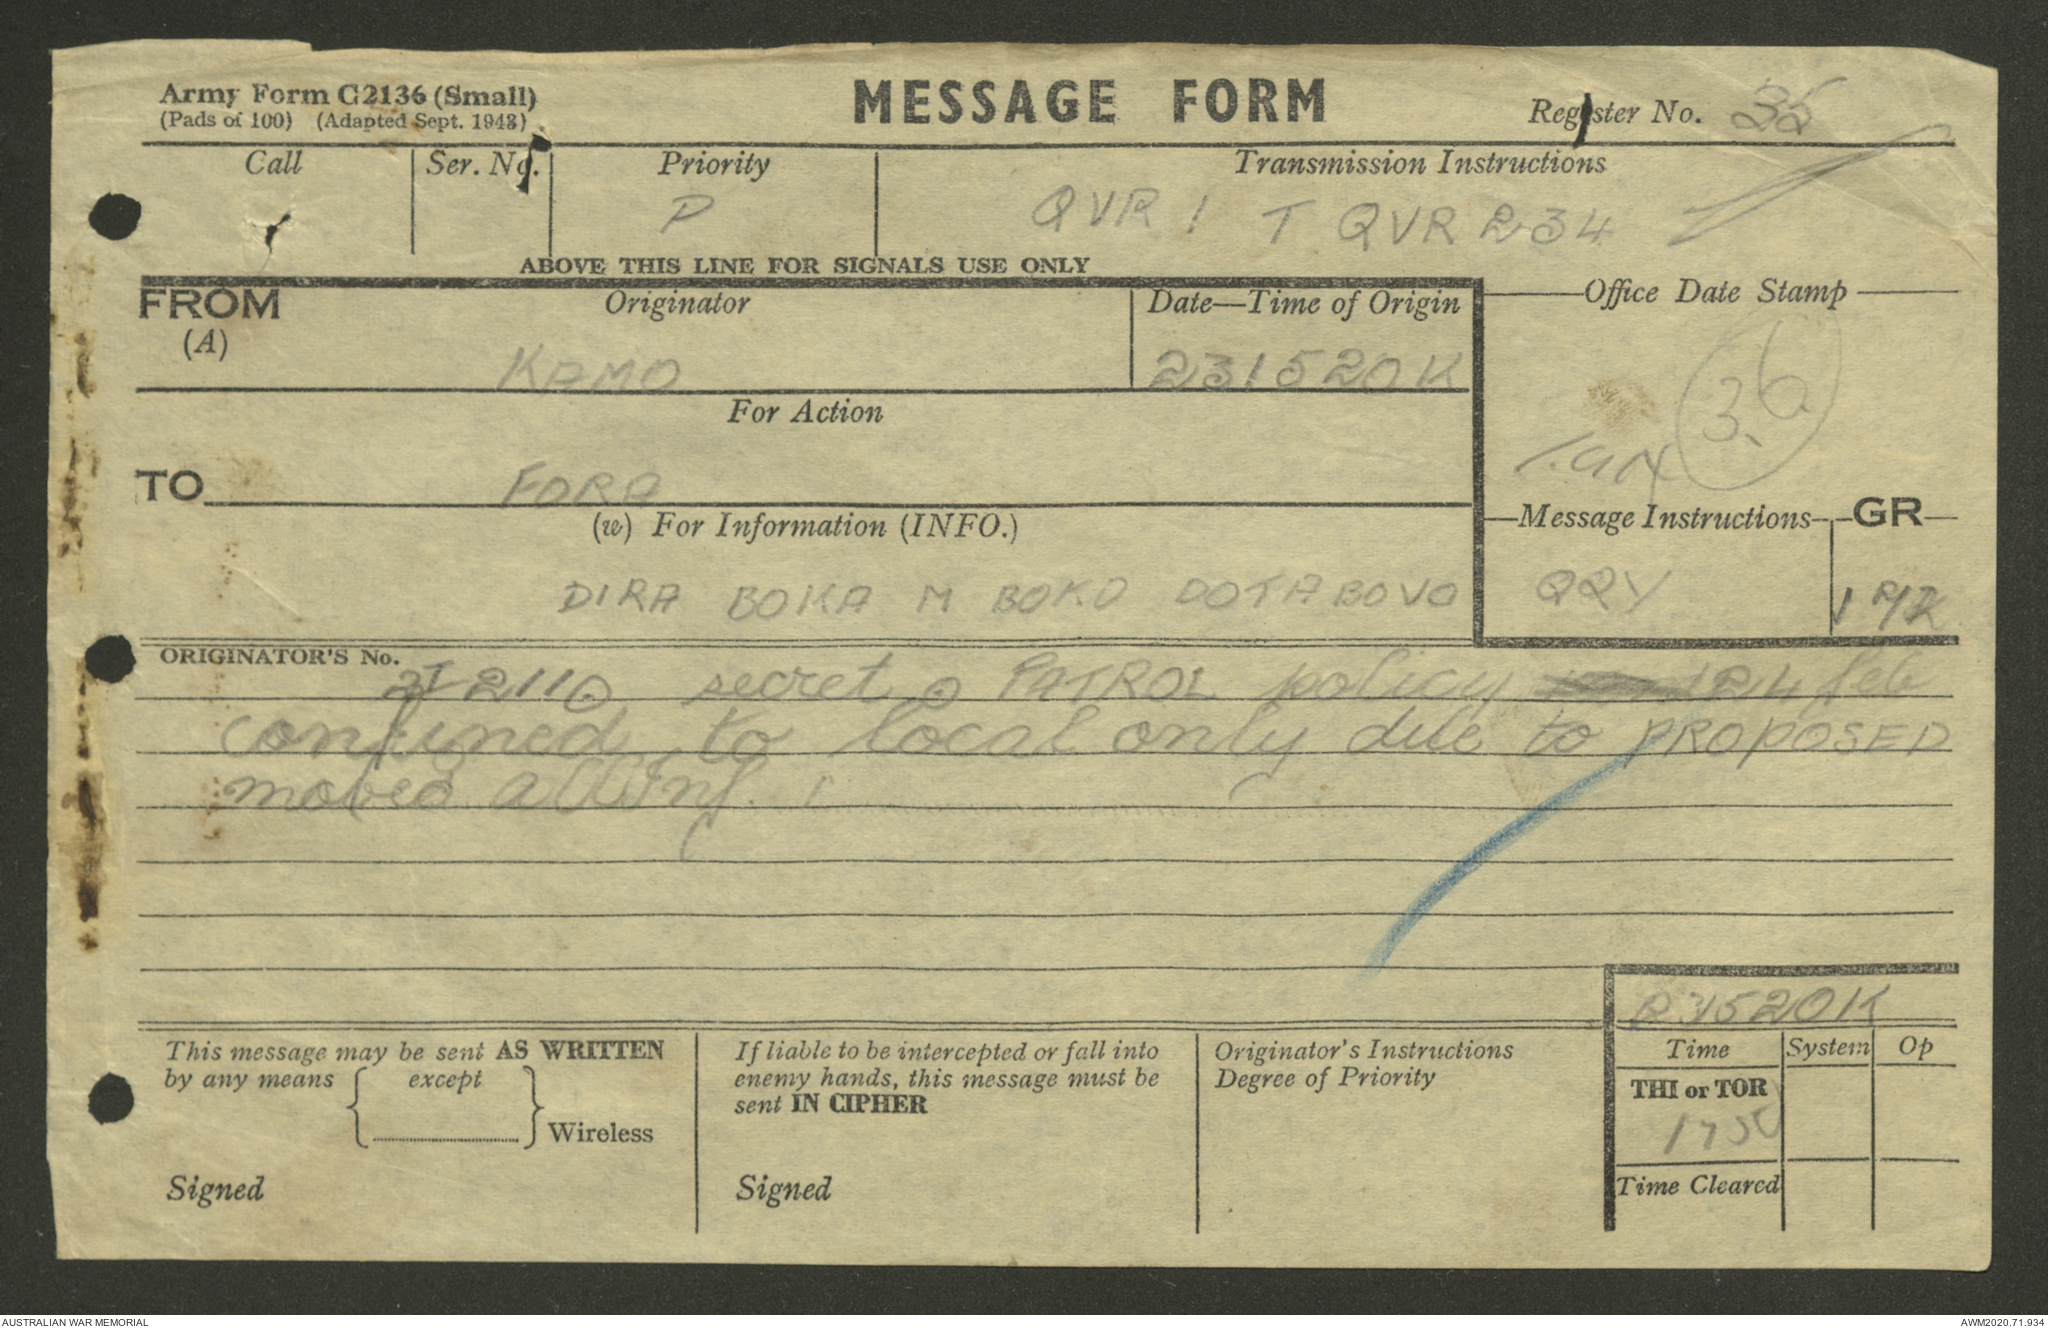 Army Form C2136 (Small)
(Pads of 100) (Adapted Sept. 1943)
MESSAGE FORM
Register No. 35
Call
Ser. No.
Priority
P
Transmission Instructions
QVR 1 T QVR 234
ABOVE THIS LINE FOR SIGNALS USE ONLY
FROM
(A)
Originator
KAMO
Date—Time of Origin
231520K
Office Date Stamp
36
For Action
TO FORA
(w) For Information (INFO.)
DIRA BOKA M BOKO DOTA BOVO
Message Instructions
QQY
GR
ORIGINATOR'S No.
2110 secret o PATROL policy 24 feb
confined to local only due to PROPOSED
moves all inf.
231520K
This message may be sent AS WRITTEN
by any means { except
} Wireless
Signed
If liable to be intercepted or fall into
enemy hands, this message must be
sent IN CIPHER
Signed
Originator's Instructions
Degree of Priority
Time
System
Op
THI or TOR
Time Cleared
AUSTRALIAN WAR MEMORIAL
AWM2020.71.934